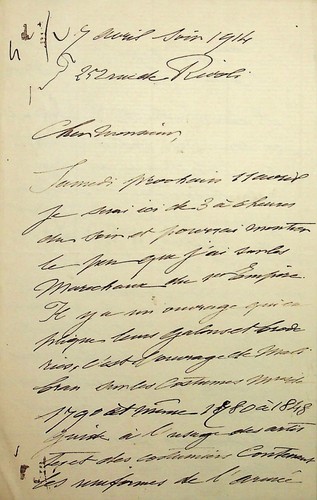 7 avril soir 1914
252 rue de Rivoli
Cher monsieur,
Samedi prochain 11 avril
je serai ici de 3 à 6 heures
du soir et pourrai montrer
le peu que j'ai sur les
Maréchaux du 1er Empire
Il y a un ouvrage qui ex
plique leurs galons et brode
ries, c'est l'ouvrage de
sur les Costumes
1790 et même 1780 à 1848
guide à l'usage des artis
tes et des costumiers Contenant
les uniformes de l'armée